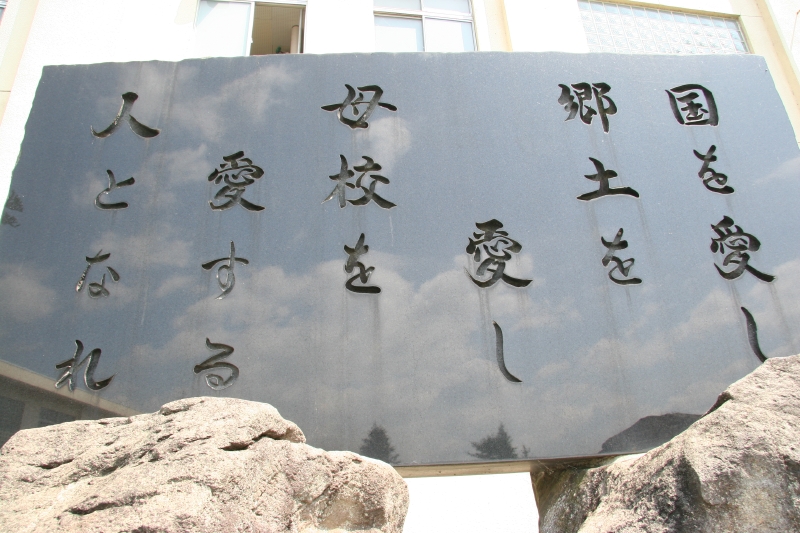 国を愛し
郷土を
愛し
母校を
愛する
人となれ